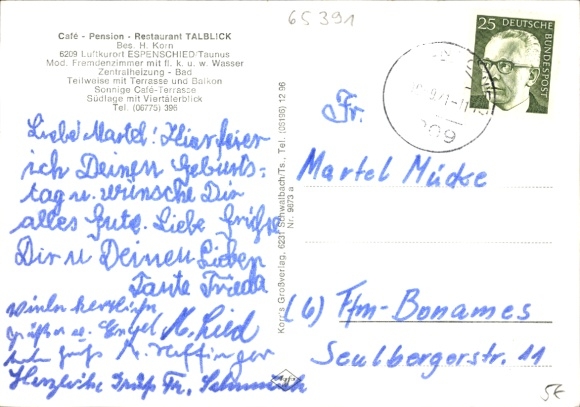 65391
Café - Pension - Restaurant TALBLICK
Bes. H. Korn
6209 Luftkurort ESPENSCHIED/Taunus
Mod. Fremdenzimmer mit fl. k. u. w. Wasser
Zentralheizung - Bad
Teilweise mit Terrasse und Balkon
Sonnige Café-Terrasse
Südlage mit Viertälerblick
Tel. (06775) 396
Liebe Martel! Hier feier
ich Deinen Geburts-
tag u. wünsche Dir
alles Gute. Liebe Grüße
Dir u Deinen Lieben
Tante Frieda
herzliche
Grüße
Herzliche Grüße Fr.
Korr's Großverlag, 6231 Schwalbach/Ts., Tel. (06196) 12 96
Nr. 9673 a
25
DEUTSCHE BUNDESPOST
209
Fr.
Martel Mücke
(6) Ffm-Bonames
Seulbergerstr. 11
5E